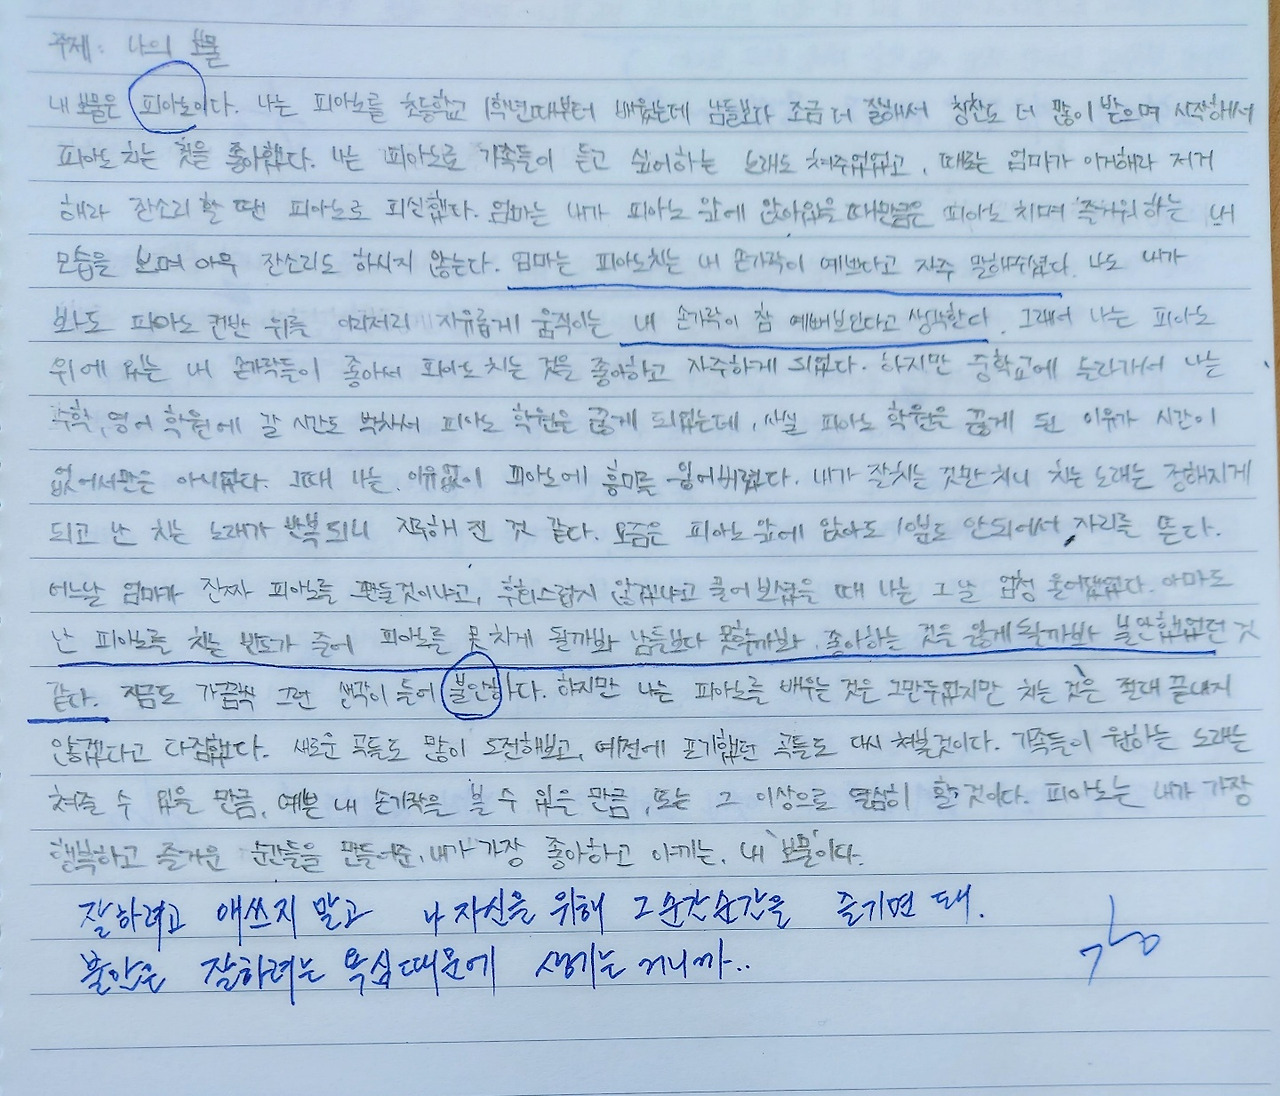 주제: 나의 보물
내 보물은 피아노이다. 나는 피아노를 초등학교 1학년때부터 배웠는데 남들보다 조금 더 잘해서 칭찬도 더 많이 받으며 시작해서
피아노 치는 것을 좋아했다. 나는 피아노로 가족들이 듣고 싶어하는 노래도 쳐주었었고, 때로는 엄마가 이거해라 저거
해라 잔소리 할 땐 피아노로 피신했다. 엄마는 내가 피아노 앞에 앉아있을 때만큼은 피아노 치며 즐거워 하는 내
모습을 보며 아무 잔소리도 하시지 않는다. 엄마는 피아노치는 내 손가락이 예쁘다고 자주 말해주셨다. 나도 내가
봐도 피아노 건반 위를 이리저리 자유롭게 움직이는 내 손가락이 참 예뻐보인다고 생각한다. 그래서 나는 피아노
위에 있는 내 손가락들이 좋아서 피아노 치는 것을 좋아하고 자주하게 되었다. 하지만 중학교에 올라가서 나는
수학, 영어 학원에 갈 시간도 벅차서 피아노 학원은 끊게 되었는데, 사실 피아노 학원은 끊게 된 이유가 시간이
없어서만은 아니었다. 그때 나는 이유없이 피아노에 흥미를 잃어버렸다. 내가 잘치는 것만 치니 치는 노래는 정해지게
되고 난 치는 노래가 반복되니 지루해 진 것 같다. 요즘은 피아노 앞에 앉아도 10분도 안되어서 자리를 뜬다.
어느날 엄마가 진짜 피아노를 팔것이냐고, 후회스럽지 않겠냐고 물어 보셨을 때 나는 그 날 엄청 울어댔었다. 아마도
난 피아노를 치는 빈도가 줄어 피아노를 못 치게 될까봐 남들보다 못할까봐, 좋아하는 것을 잃게 될까봐 불안했었던 것
같다. 지금도 가끔씩 그런 생각이 들어 불안하다. 하지만 나는 피아노를 배우는 것은 그만두었지만 치는 것은 절대 끝내지
않겠다고 다짐했다. 새로운 곡들도 많이 도전해보고, 예전에 포기했던 곡들도 다시 쳐볼것이다. 가족들이 원하는 노래는
쳐줄 수 있을 만큼, 예쁜 내 손가락을 볼 수 있을 만큼, 또는 그 이상으로 열심히 할 것이다. 피아노는 내가 가장
행복하고 즐거운 순간들을 만들어준, 내가 가장 좋아하고 아끼는, 내 '보물'이다.
잘하려고 애쓰지 말고 나 자신을 위해 그 순간순간을 즐기면 돼.
불안은 잘하려는 욕심때문에 생기는 거니까..